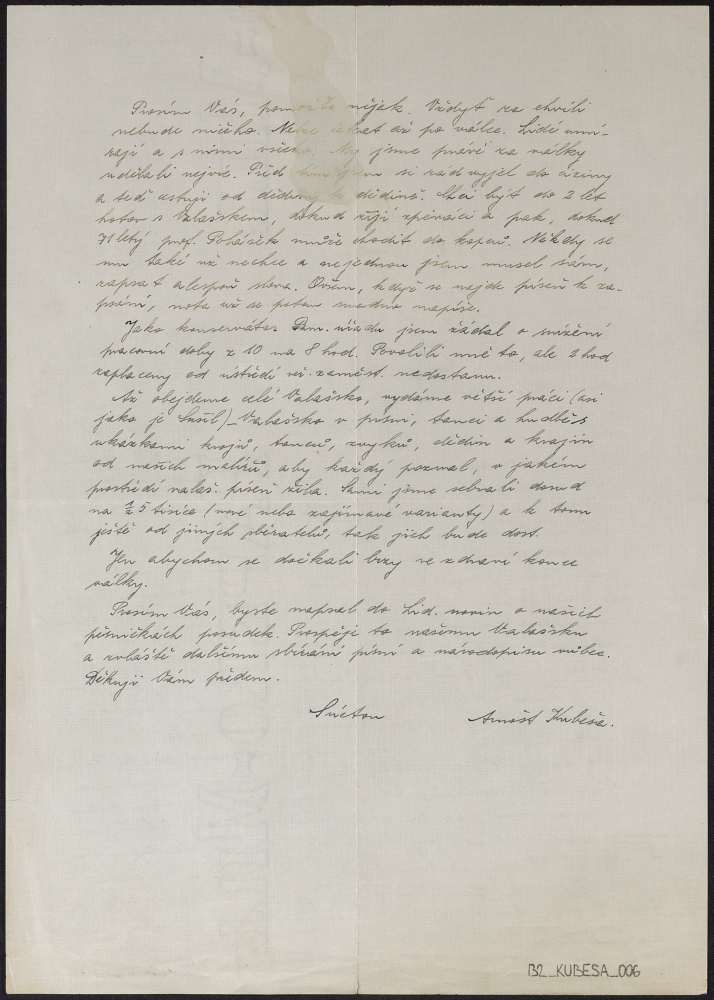 Prosím Vás, pomozte nějak. Vždyť za chvíli
nebude ničeho. Nelze čekat až po válce. Lidé umí-
rají a s nimi všecko. My jsme právě za války
udělali nejvíc. Před tím jsem si rád vyjel do ciziny
a teď cestuji od dědiny k dědině. Chci být do 2 let
hotov s Valašskem, dokud žijí zpěváci a pak, dokud
71letý prof. Poláček může chodit do kopců. Někdy se
mu také už nechce a nejednou jsem musel sám,
zapsat alespoň slova. Ovšem, když se najde píseň k za-
psání, nota už se potom snadno napíše.
Jako konservátor Pam. úřadu jsem žádal o snížení
pracovní doby z 10 na 8 hod. Povolili mně to, ale 2 hod
zaplaceny od ústředí veř. zaměst. nedostanu.
Až obejdeme celé Valašsko, vydáme větší práci (asi
jako je Sušil) - Valašsko v písni, tanci a hudbě s
ukázkami krojů, tanců, zvyků, dědin a krajin
od našich malířů, aby každý poznal, v jakém
prostředí valaš. píseň žila. Sami jsme sebrali dosud
na 1/2 5 tisíce (nové nebo zajímavé varianty) a k tomu
ještě od jiných sběratelů, tak jich bude dost.
Jen abychom se dočkali brzy ve zdraví konce
války.
Prosím Vás, byste napsal do Lid. novin o našich
pěsničkách posudek. Prospěje to našemu Valašsku
a zvláště dalšímu sbírání písní a národopisu vůbec.
Děkuji Vám předem.
S úctou Arnošt Kubeša.
B2_KUBESA_006